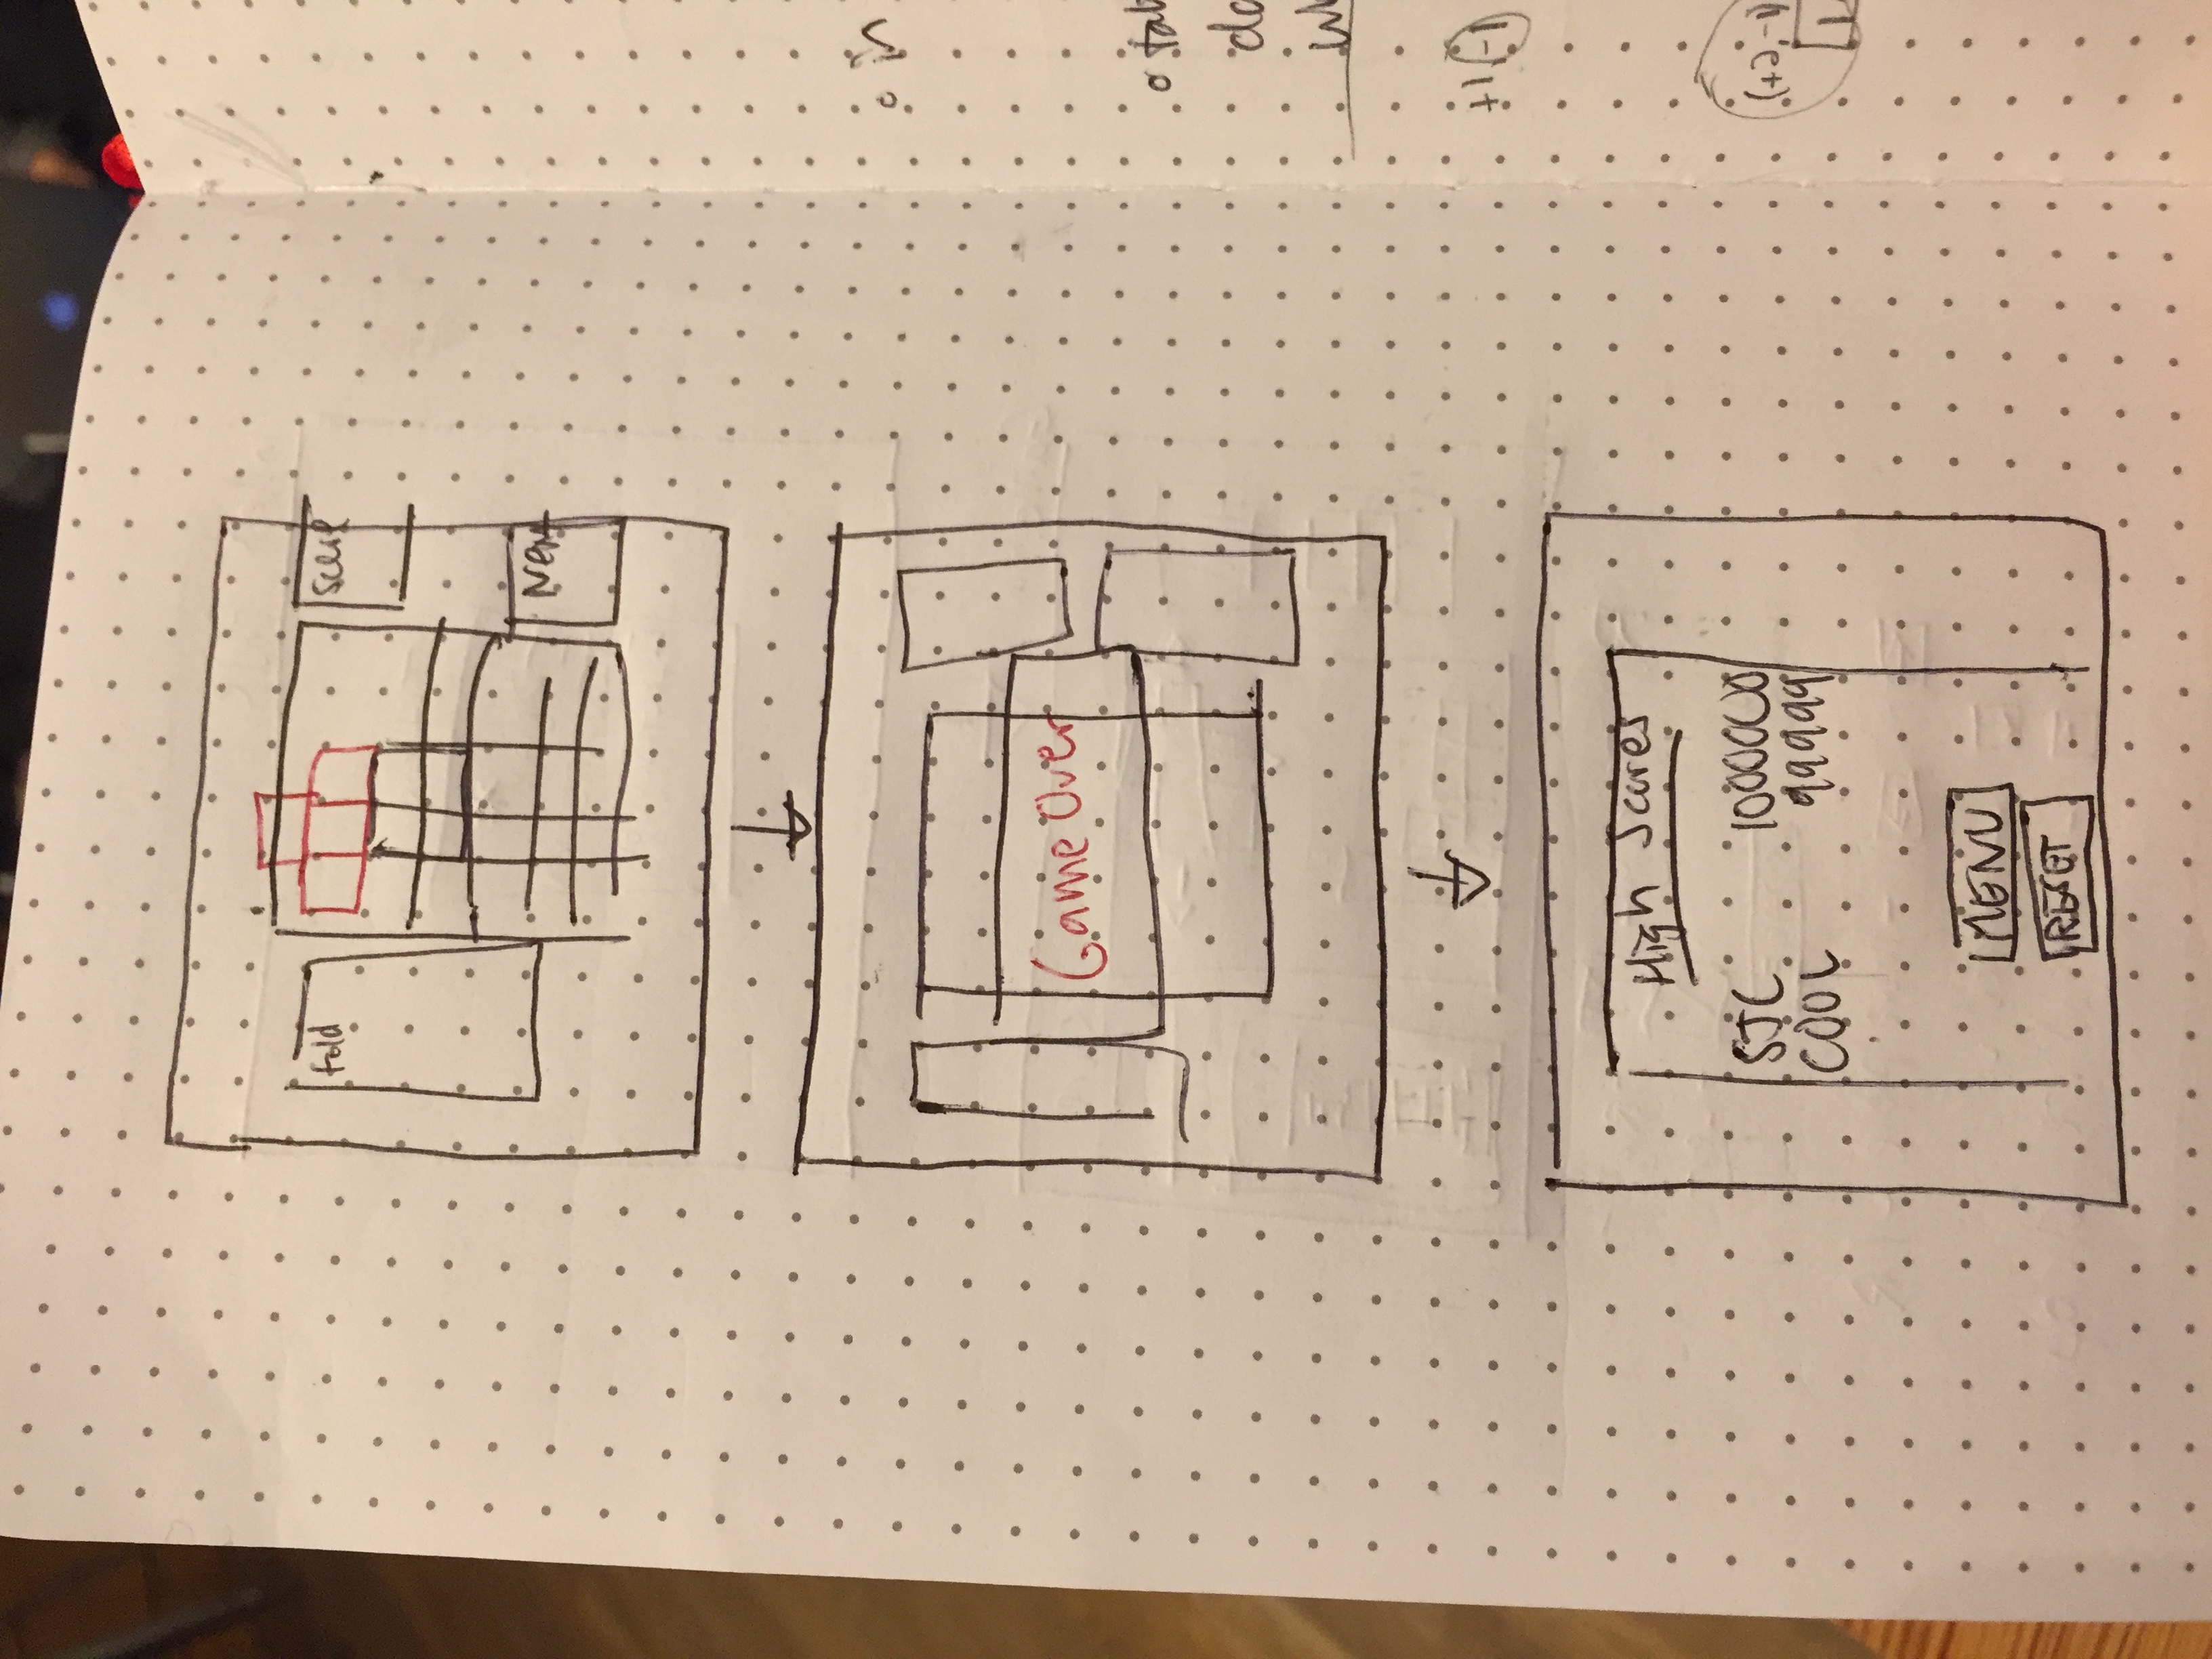 Fold
Score
Next
Game Over
High Scores
SJC 1000000
COOL 99999
MENU
RESET
o in
o
+1 -1
(+2,-1)